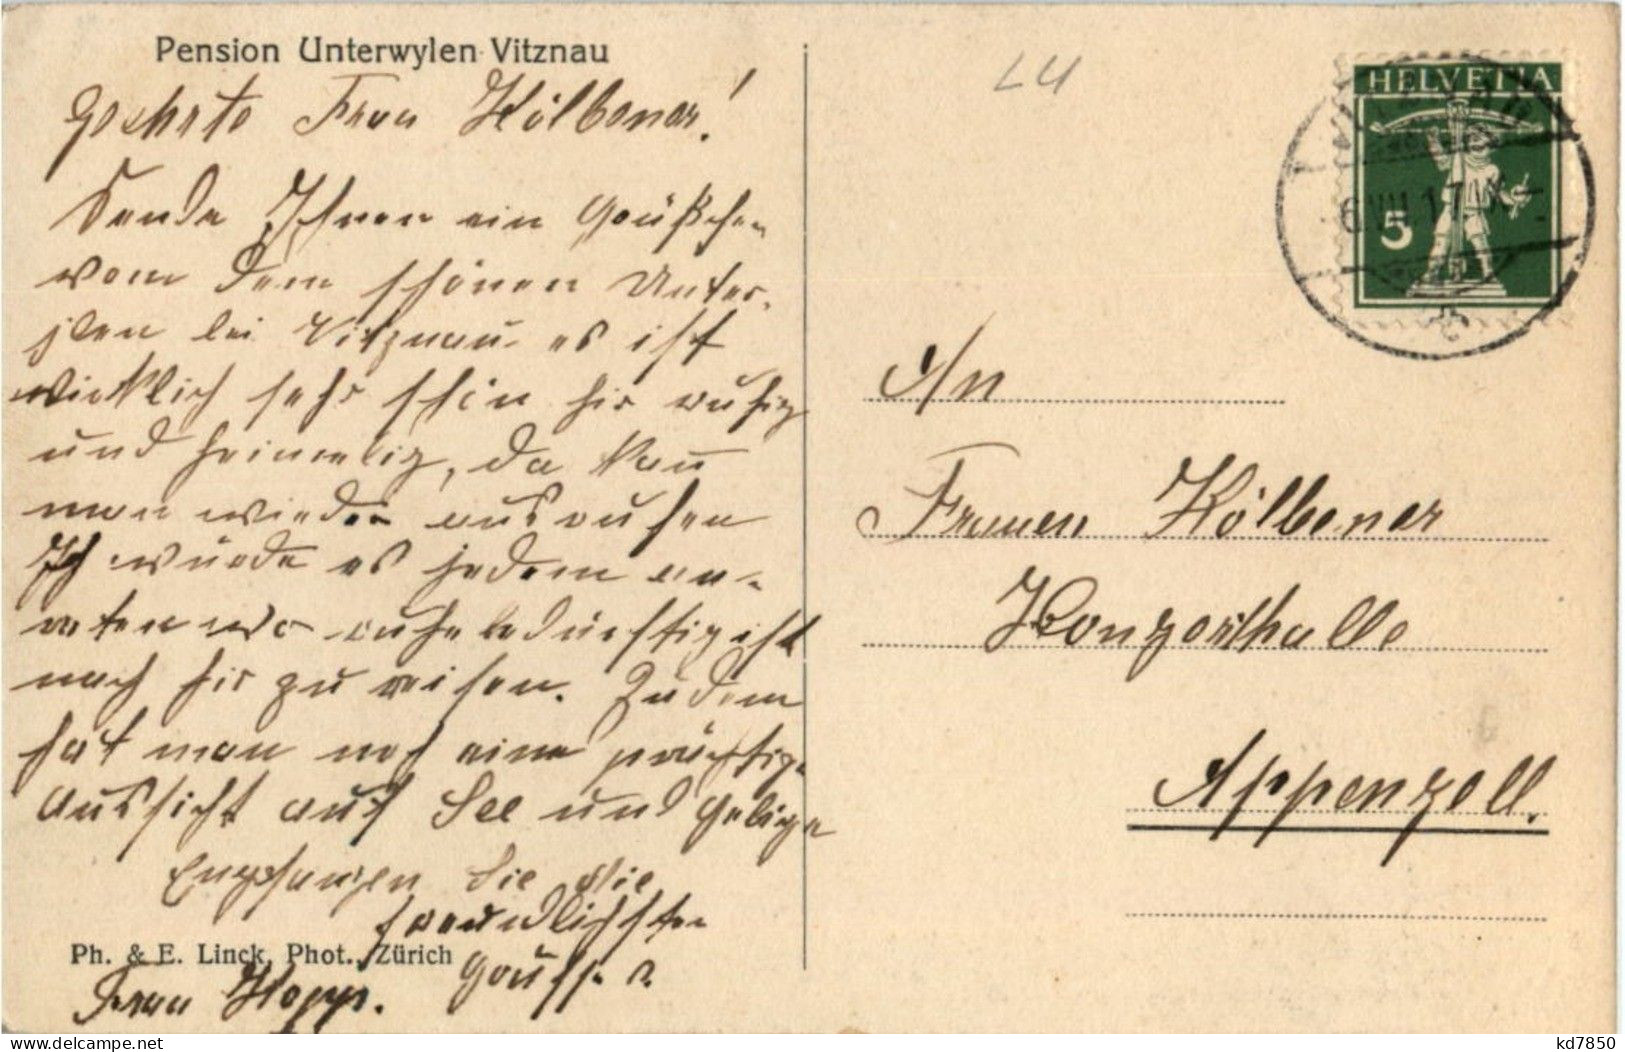 Pension Unterwylen Vitznau
Geehrte Frau Kölbener!
Sende Ihnen ein Grüßchen
vom dem schönen Unter-
ylen bei Vitznau es ist
wirklich sehr schön hir ruhig
und heimelig, da kan
man wieder ausruhen
Ich würde es jedem an-
raten wo ruhebedürftig ist
nach hir zu reisen. Zudem
hat man noch eine prächtige
Aussicht auf See und
Empfangen Sie die
freundlichsten
Grüsse v.
Frau Hopp.
Ph. & E. Linck, Phot., Zürich
LU
HELVETIA
5
An
Frauen Kölbener
Konzerthalle
Appenzell.
kd7850